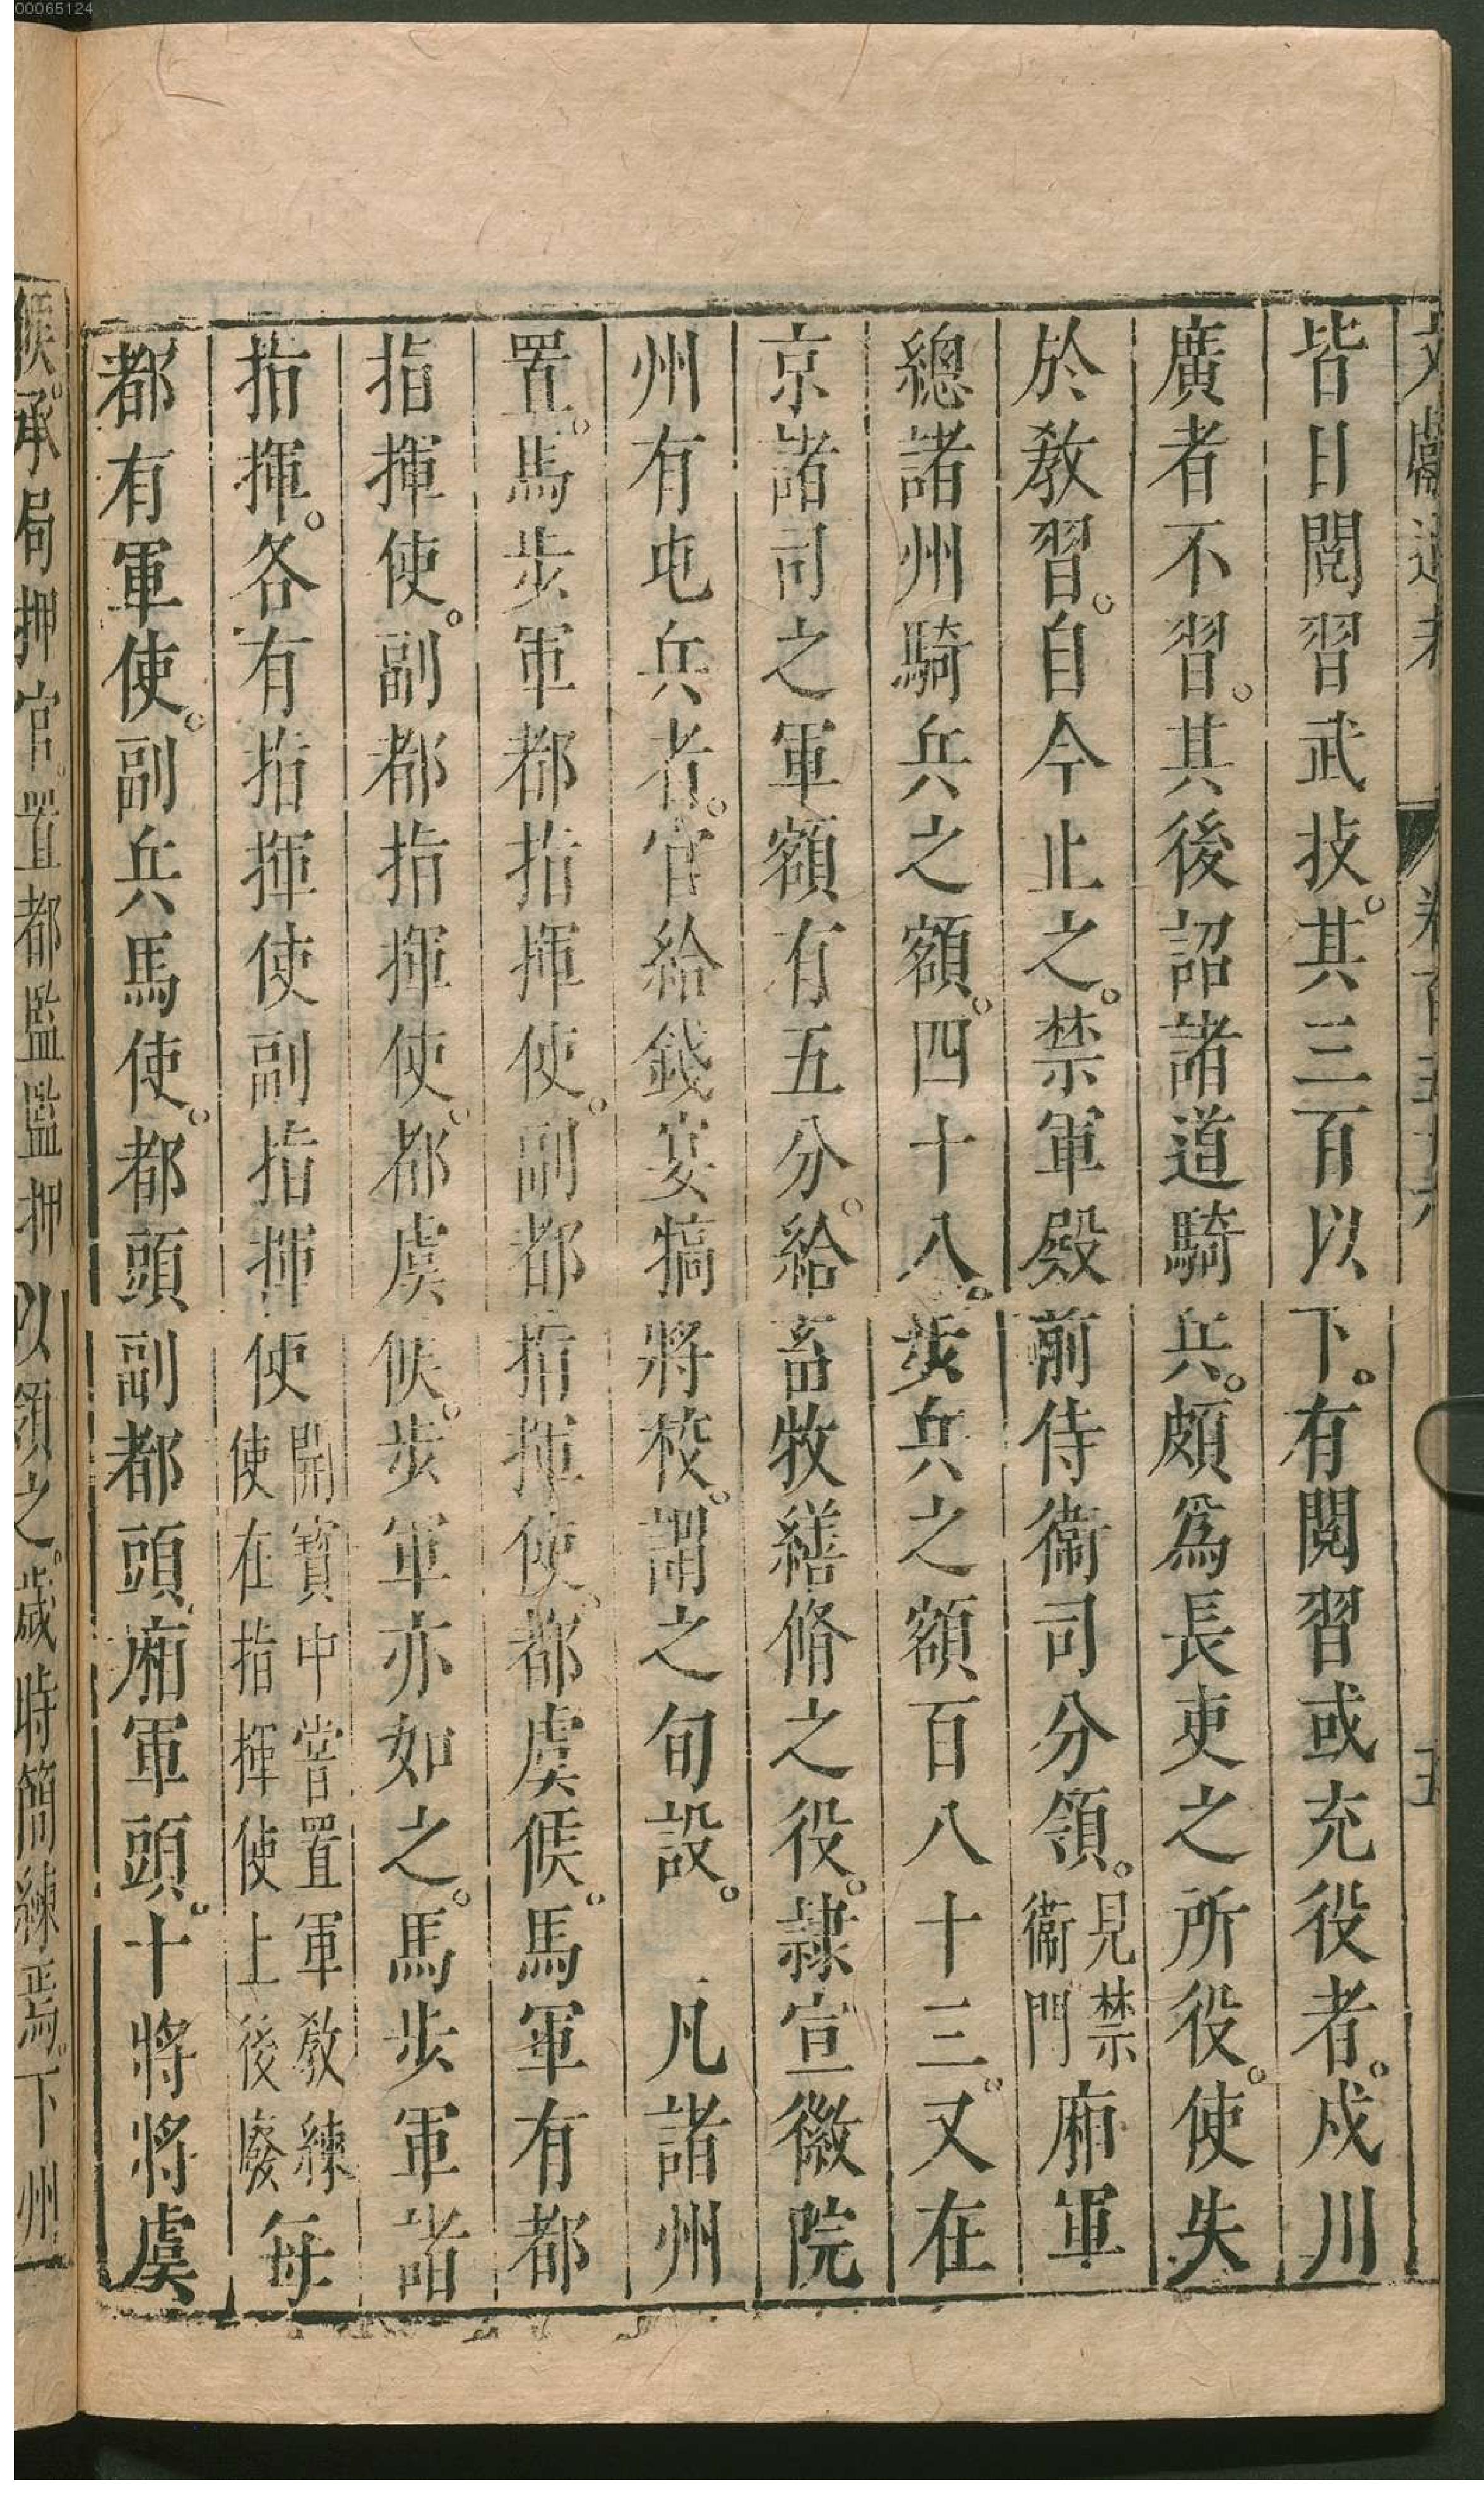 00065124
皆日閱習武技。其三百以下。有閱習或充役者。戍川
廣者不習。其後詔諸道騎兵。頗爲長吏之所役。使失
於教習。自今止之。禁軍殿前侍衛司分領。見禁衛門廂軍
總諸州騎兵之額。四十八。步兵之額百八十三。又在
京諸司之軍額有五分。給畜牧繕脩之役。隷宣徽院
州有屯兵者。官給錢宴犒將校。謂之旬設。 凡諸州
置。馬步軍都指揮使。副都指揮使。都虞候。馬軍有都
指揮使。副都指揮使。都虞候。步軍亦如之。馬步軍諸
指揮。各有指揮使副指揮使開寶中嘗置軍教練使在指揮使上後廢每
都有軍使。副兵馬使。都頭副都頭。廂軍頭。十將將虞
候。承局押官。置都監監押以領之。歲時簡練焉。下州